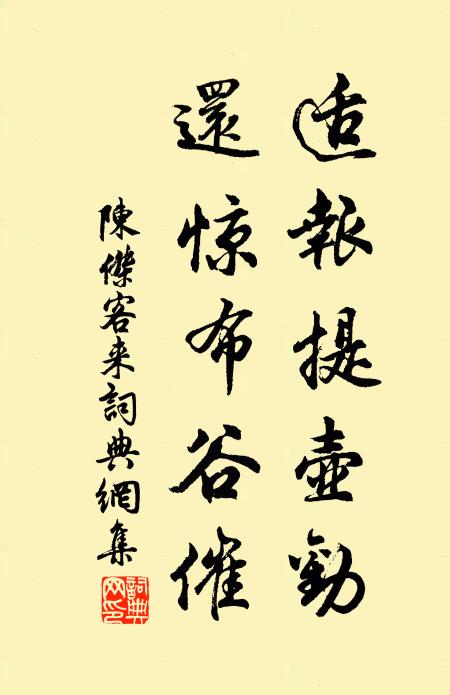 适報提壺勸
還惊布谷催
陳傑客来詞典網集
詞典網印